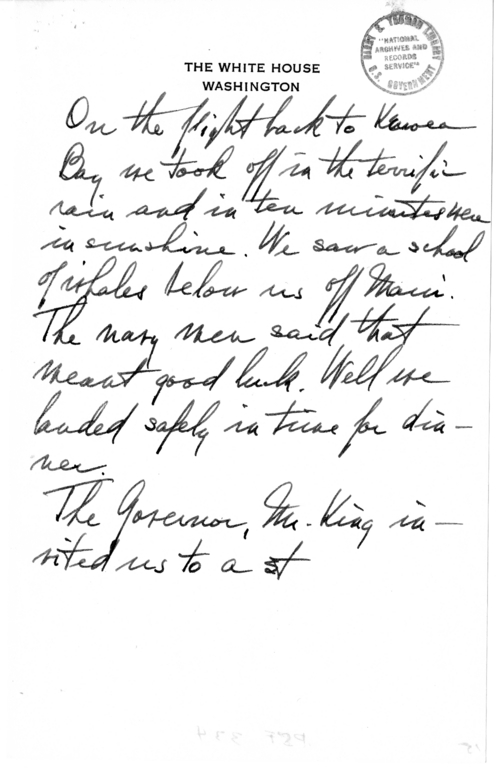 HARRY S. TRUMAN LIBRARY
"NATIONAL
ARCHIVES AND
RECORDS
SERVICE"
U.S. GOVERNMENT
THE WHITE HOUSE
WASHINGTON
On the flight back to Keawea
Bay we took off in the terrific
rain and in ten minutes were
in sunshine. We saw a school
of whales below us off Maui.
The navy men said that
meant good luck. Well we
landed safely in time for din-
ner.
The Governor, Mr. King in-
vited us to a st